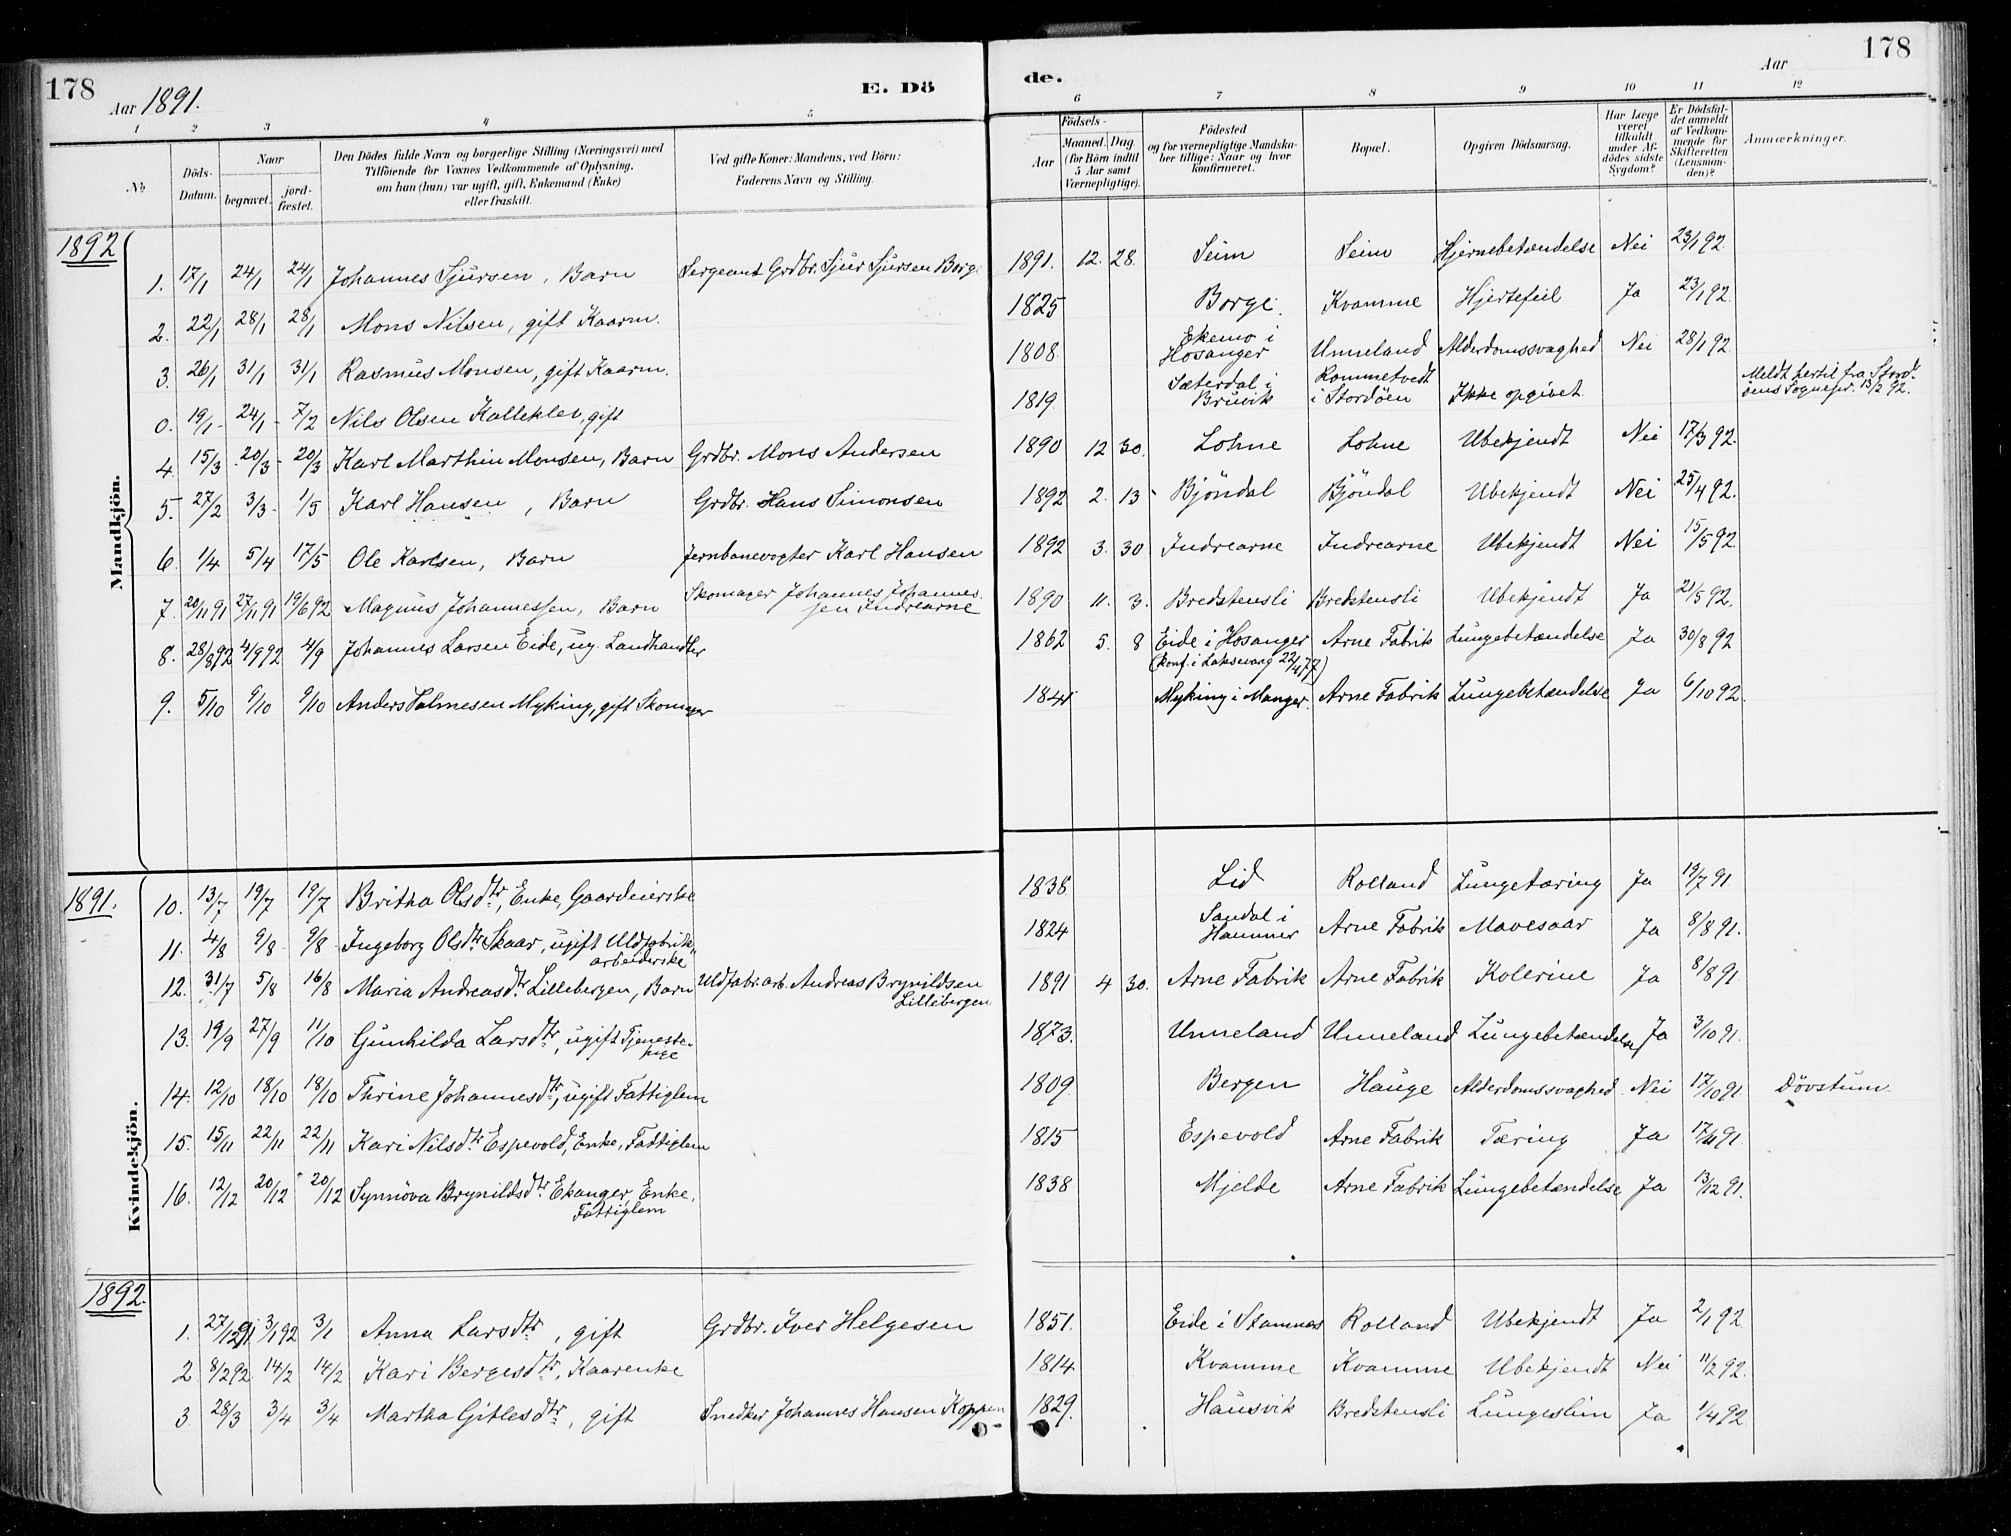 178
Aar 1891.
E. Dö
de.
Aar
178
1
2
3
4
5
6
7
8
9
10
11
12
№
Döds-
Datum.
Naar
begravet.
jord-
fæstet.
Den Dödes fulde Navn og borgerlige Stilling (Næringsvei) med
Tilföiende for Voxnes Vedkommende af Oplysning,
om han (hun) var ugift, gift, Enkemand (Enke)
eller fraskilt.
Ved gifte Koner: Mandens, ved Börn:
Faderens Navn og Stilling.
Födsels-
Aar
Maaned.
Dag
(for Börn indtil
5 Aar samt
Værnepligtige).
Födested
og for værnepligtige Mandska-
ber tillige: Naar og hvor
konfirmeret.
Bopæl.
Opgiven Dödsaarsag.
Har Læge
været
tilkaldt
under Af-
dödes sidste
Sygdom?
Er Dödsfal-
det anmeldt
af Vedkom-
mende for
Skifteretten
(Lensman-
den)?
Anmærkninger.
1892
Mandkjön.
1. 17/1 24/1 24/1 Johannes Sjursen, Barn Sergeant Grdbr. Sjur Sjursen Borge 1891. 12. 28. Seim Seim Hjernebetændelse Nei 23/1 92.
2. 22/1 28/1 28/1 Mons Nilsen, gift Kaarm. 1825 Borge. Kvamme Hjertefeil Ja 23/1 92.
3. 26/1 31/1 31/1 Rasmus Monsen, gift Kaarm. 1808 Ekemo i
Hosanger Unneland Alderdomssvaghed Nei 28/1 92.
0. 19/1 - 24/1 - 7/2 Nils Olsen Kalleklev, gift 1819. Sæterdal i
Bruvik Rommetvedt
i Stordöen Ikke opgivet. Meldt hertil fra Stord-
öens Sognepr. 13/2 92.
4. 15/3 - 20/3 - 20/3 Karl Marthin Monsen, Barn Grdbr. Mons Andersen 1890 12 30. Lohne Lohne Ubekjendt Nei 17/3 92.
5. 27/2 3/3 - 1/5 Karl Hansen, Barn Grdbr. Hans Simonsen 1892 2. 13 - Bjöndal Bjöndal Ubekjendt Nei 25/4 92.
6. 1/4 5/4 17/5 Ole Karlsen, Barn Jernbanevogter Karl Hansen 1892 3. 30 Indrearne Indrearne Ubekjendt Nei 15/5 92.
7. 20/11 91 27/11 91 19/6 92 Magnus Johannessen, Barn Skomager Johannes Johannes-
sen Indrearne 1890 11. 3. Bredstensli Bredstensli Ubekjendt Ja 21/5 92.
8. 28/8 92 4/9 92 4/9 Johannes Larsen Eide, ug. Landhandler 1862 5. 8 Eide i Hosanger
(konf. i Laksevaag 22/4 77) Arne Fabrik Lungebetændelse Ja 30/8 92
9. 5/10 9/10 9/10 Anders Salmesen Myking, gift Skomager 1841 Myking i Manger. Arne Fabrik Lungebetændelse Ja 6/10 92.
1891.
Kvindekjön.
10. 13/7 19/7 19/7 Britha Olsdtr, Enke, Gaardeierske 1838 Lid Rolland Lungetæring Ja 19/7 91
11. 4/8 9/8 - 9/8 Ingeborg Olsdtr Skaar, ugift Uldfabrik-
arbeiderske 1824 Sandal i
Hammer Arne Fabrik Mavesaar Ja 8/8 91.
12. 31/7 5/8 16/8 Maria Andreasdtr Lillebergen, Barn Uldfabr. arb. Andreas Brynildsen
Lillebergen 1891 4 30. Arne Fabrik Arne Fabrik Kolerine Ja 8/8 91.
13. 19/9 27/9 11/10 Gunhilda Larsdtr, ugift Tjeneste-
pige 1873. Unneland Unneland Lungebetændelse Ja 3/10 91.
14. 12/10 18/10 18/10 Thrine Johannesdtr, ugift Fattiglem 1809. Bergen Hauge Alderdomssvaghed Nei 17/10 91. Dövstum.
15. 15/11 22/11 22/11 Kari Nilsdtr Espevold, Enke, Fattiglem 1815 Espevold Arne Fabrik Tæring Ja 17/11 91.
16. 12/12 20/12 20/12 Synnöva Brynildsdtr Ekanger, Enke,
Fattiglem 1838 Mjelde Arne Fabrik Lungebetændelse Ja 13/12 91.
1892.
1. 27/12 91. 3/1 92 3/1 Anna Larsdtr, gift Grdbr. Iver Helgesen 1851. Eide i Stamnes Rolland Ubekjendt Ja 2/1 92
2 8/2 92 14/2 14/2 Kari Bergesdtr, Kaarenke 1814. Kvamme Kvamme Ubekjendt Nei 11/2 92.
3 28/3 3/4 3/4 Martha Gitlesdtr, gift Snedker Johannes Hansen Koppen 1829. Hausvik Bredstensli Lungeslim Ja 1/4 92